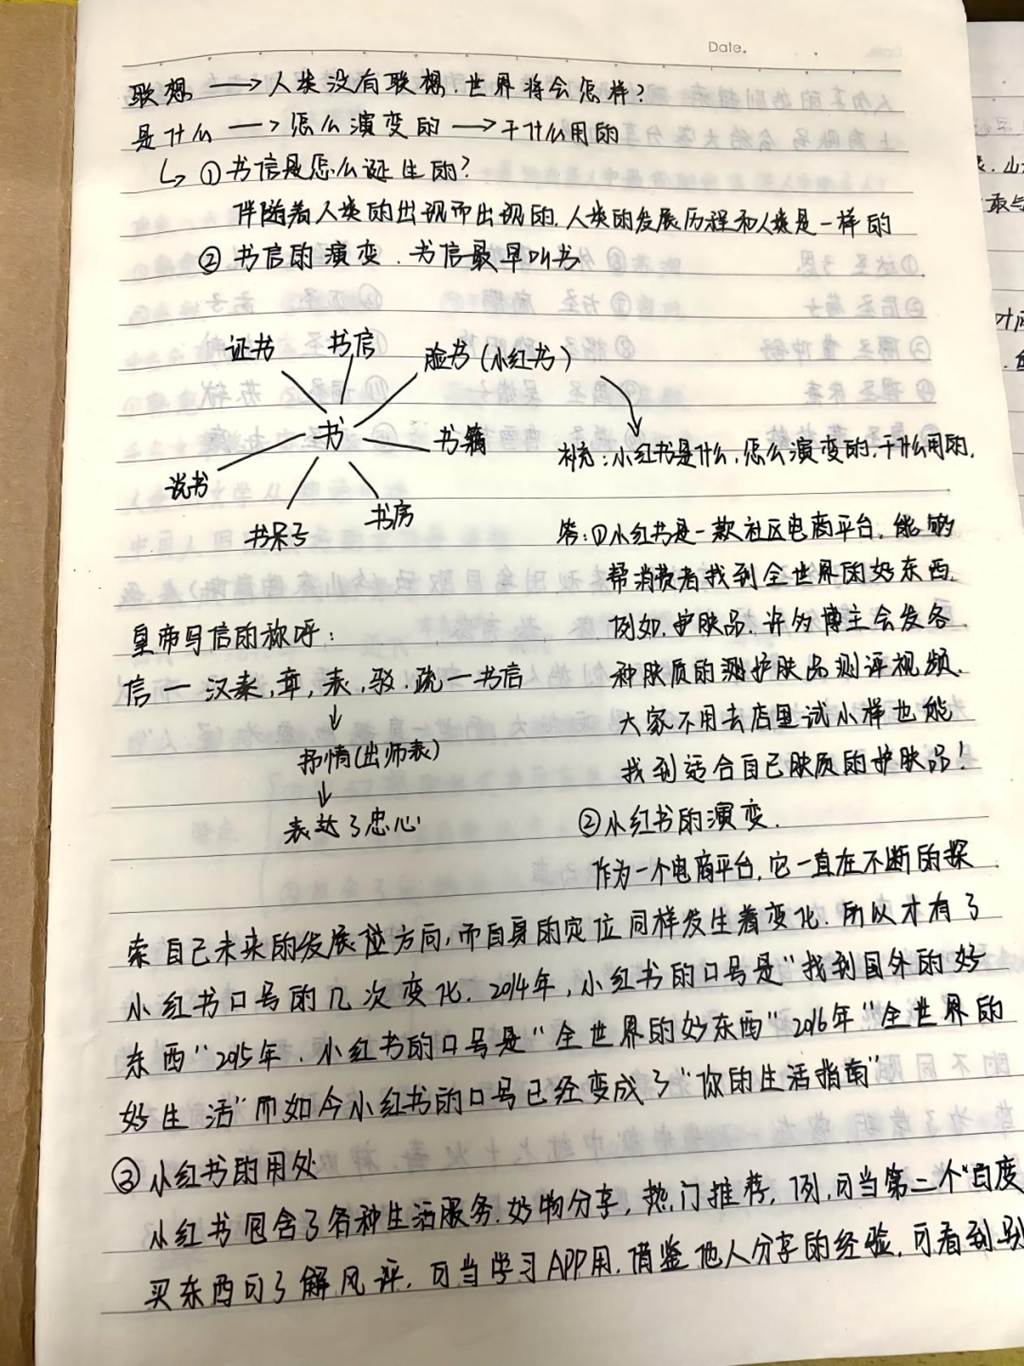 Date.
联想 → 人类没有联想.世界将会怎样?
是什么 → 怎么演变的 → 干什么用的
↳ ①书信是怎么诞生的?
伴随着人类的出现而出现的.人类的发展历程和人类是一样的
② 书信的演变.书信最早叫书
证书 书信 脸书(小红书)
书 书籍
说书 书呆子 书房
补充:小红书是什么,怎么演变的,干什么用的.
答:①小红书是一款社区电商平台,能够
帮消费者找到全世界的好东西.
例如.护肤品.许多博主会发各
种肤质的测护肤品测评视频.
大家不用去店里试小样也能
找到适合自己肤质的护肤品!
皇帝写信的称呼:
信一 汉奏,章,表,驳.疏一书信
↓
抒情(出师表)
↓
表达了忠心
②小红书的演变.
作为一个电商平台,它一直在不断的探
索自己未来的发展方向,而自身的定位同样发生着变化.所以才有了
小红书口号的几次变化.2014年,小红书的口号是"找到国外的好
东西"2015年.小红书的口号是"全世界的好东西"2016年"全世界的
好生活"而如今小红书的口号已经变成了"你的生活指南"
③小红书的用处
小红书包含了各种生活服务.好物分享,热门推荐,例,可当第二个"百度
买东西可了解风评.可当学习APP用.借鉴他人分享的经验.可看到别